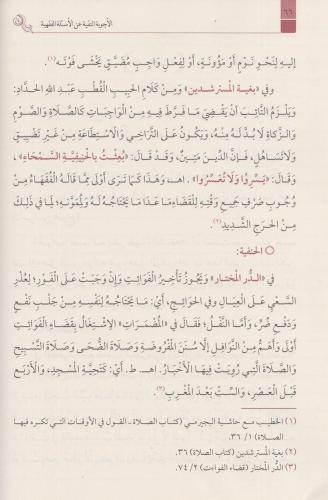 ٦٦
الأجوبة النقية عن الأسئلة الفقهية
إِلَيْهِ لِنَحْوِ نَوْمٍ أَوْ مَؤُونَةٍ، أَوْ لِفِعْلِ وَاجِبٍ مُضَيَّقٍ يَخْشَى فَوْتَهُ (١).
وفي «بغية المسترشدين» وَمِنْ كَلَامِ الحَبِيبِ القُطْبِ عَبْدِ اللهِ الحَدَّادِ:
وَيَلْزَمُ التَّائِبَ أَنْ يَقْضِيَ مَا فَرَّطَ فِيهِ مِنَ الوَاجِبَاتِ كَالصَّلَاةِ وَالصَّوْمِ
وَالزَّكَاةِ لَا بُدَّ لَهُ مِنْهُ، وَيَكُونُ عَلَى التَّرَاخِي وَالِاسْتِطَاعَةِ مِنْ غَيْرِ تَضْيِيقٍ
وَلَا تَسَاهُلٍ، فَإِنَّ الدِّينَ مَتِينٌ، وَقَدْ قَالَ: «بُعِثْتُ بِالحَنِيفِيَّةِ السَّمْحَاءِ»،
وَقَالَ: «يَسِّرُوا وَلَا تُعَسِّرُوا». اهـ، وَهَذَا كَمَا تَرَى أَوْلَى مِمَّا قَالَهُ الفُقَهَاءُ مِنْ
وُجُوبِ صَرْفِ جَمِيعِ وَقْتِهِ لِلْقَضَاءِ مَا عَدَا مَا يَحْتَاجُهُ لَهُ وَلِمُمَوَّنِهِ؛ لِمَا فِي ذَلِكَ
مِنَ الحَرَجِ الشَّدِيدِ (٢).
الحنفية:
في «الدُّر المُختار» وَيَجُوزُ تَأْخِيرُ الفَوَائِتِ وَإِنْ وَجَبَتْ عَلَى الفَوْرِ؛ لِعُذْرِ
السَّعْيِ عَلَى العِيَالِ وَفِي الحَوَائِجِ، أَيْ: مَا يَحْتَاجُهُ لِنَفْسِهِ مِنْ جَلْبِ نَفْعٍ
وَدَفْعِ ضُرٍّ، وَأَمَّا النَّفْلُ؛ فَقَالَ فِي «المُضْمَرَاتِ» الِاشْتِغَالُ بِقَضَاءِ الفَوَائِتِ
أَوْلَى وَأَهَمُّ مِنَ النَّوَافِلِ إِلَّا سُنَنَ المَفْرُوضَةِ وَصَلَاةَ الضُّحَى وَصَلَاةَ التَّسْبِيحِ
وَالصَّلَاةَ الَّتِي رُوِيَتْ فِيهَا الأَخْبَارُ. اهـ. ط. أَيْ: كَتَحِيَّةِ المَسْجِدِ، وَالأَرْبَعِ
قَبْلَ العَصْرِ، وَالسِّتِّ بَعْدَ المَغْرِبِ (٣).
(١) الخطيب مع حاشية البجيرمي (كتاب الصلاة - القول في الأوقات التي تكره فيها
الصلاة) ١/ ٣٦.
(٢) بغية المسترشدين (كتاب الصلاة) ٣٦.
(٣) الدُّر المختار (قضاء الفوائت) ٢/ ٧٤.